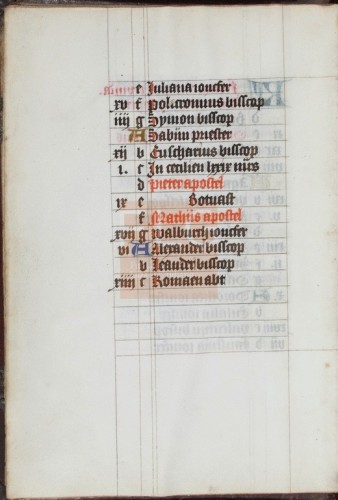 e Juliana ioncfer
xv f Policronius bisscop
iiii g Symon bisscop
A Sabijn priester
xij b Euscharius bisscop
i. c In cecilien lxxix mrs
d Pieter apostel
ix e Botuast
f Mathijs apostel
xvij g Walburch ioncfer
vi A Alexander bisscop
b Leander bisscop
xiiij c Romaen abt